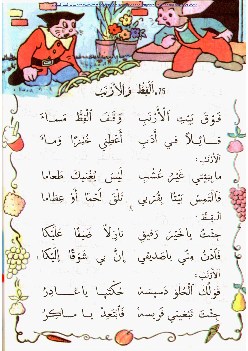 75. اَلْقِطُّ وَالْأَرْنَبُ
فَوْقَ بَيْتِ الْأَرْنَبِ وَقَفَ الْقِطُّ مَسَاءً
قَائِلًا فِي أَدَبٍ أَعْطِنِي خُبْزًا وَمَاءً
الأرنب:
مَا بِبَيْتِي غَيْرُ عُشْبٍ لَيْسَ يُغْنِيكَ طَعَامَا
فَالْتَمِسْ بَيْتًا بِقُرْبِي تَلْقَ لَحْمًا أَوْ عِظَامَا
القط:
جِئْتُ يَا خَيْرَ رَفِيقٍ نَازِلًا ضَيْفًا عَلَيْكَا
فَأْذَنْ مِنِّي يَا صَدِيقِي إِنَّ بِي شَوْقًا إِلَيْكَا
الأرنب:
قَوْلُكَ الْحُلْوُ دَسِيسَة حُكْتَهَا يَا غَادِرُ
جِئْتَ تَبْغِينِي فَرِيسَة فَابْتَعِدْ يَا مَاكِرُ